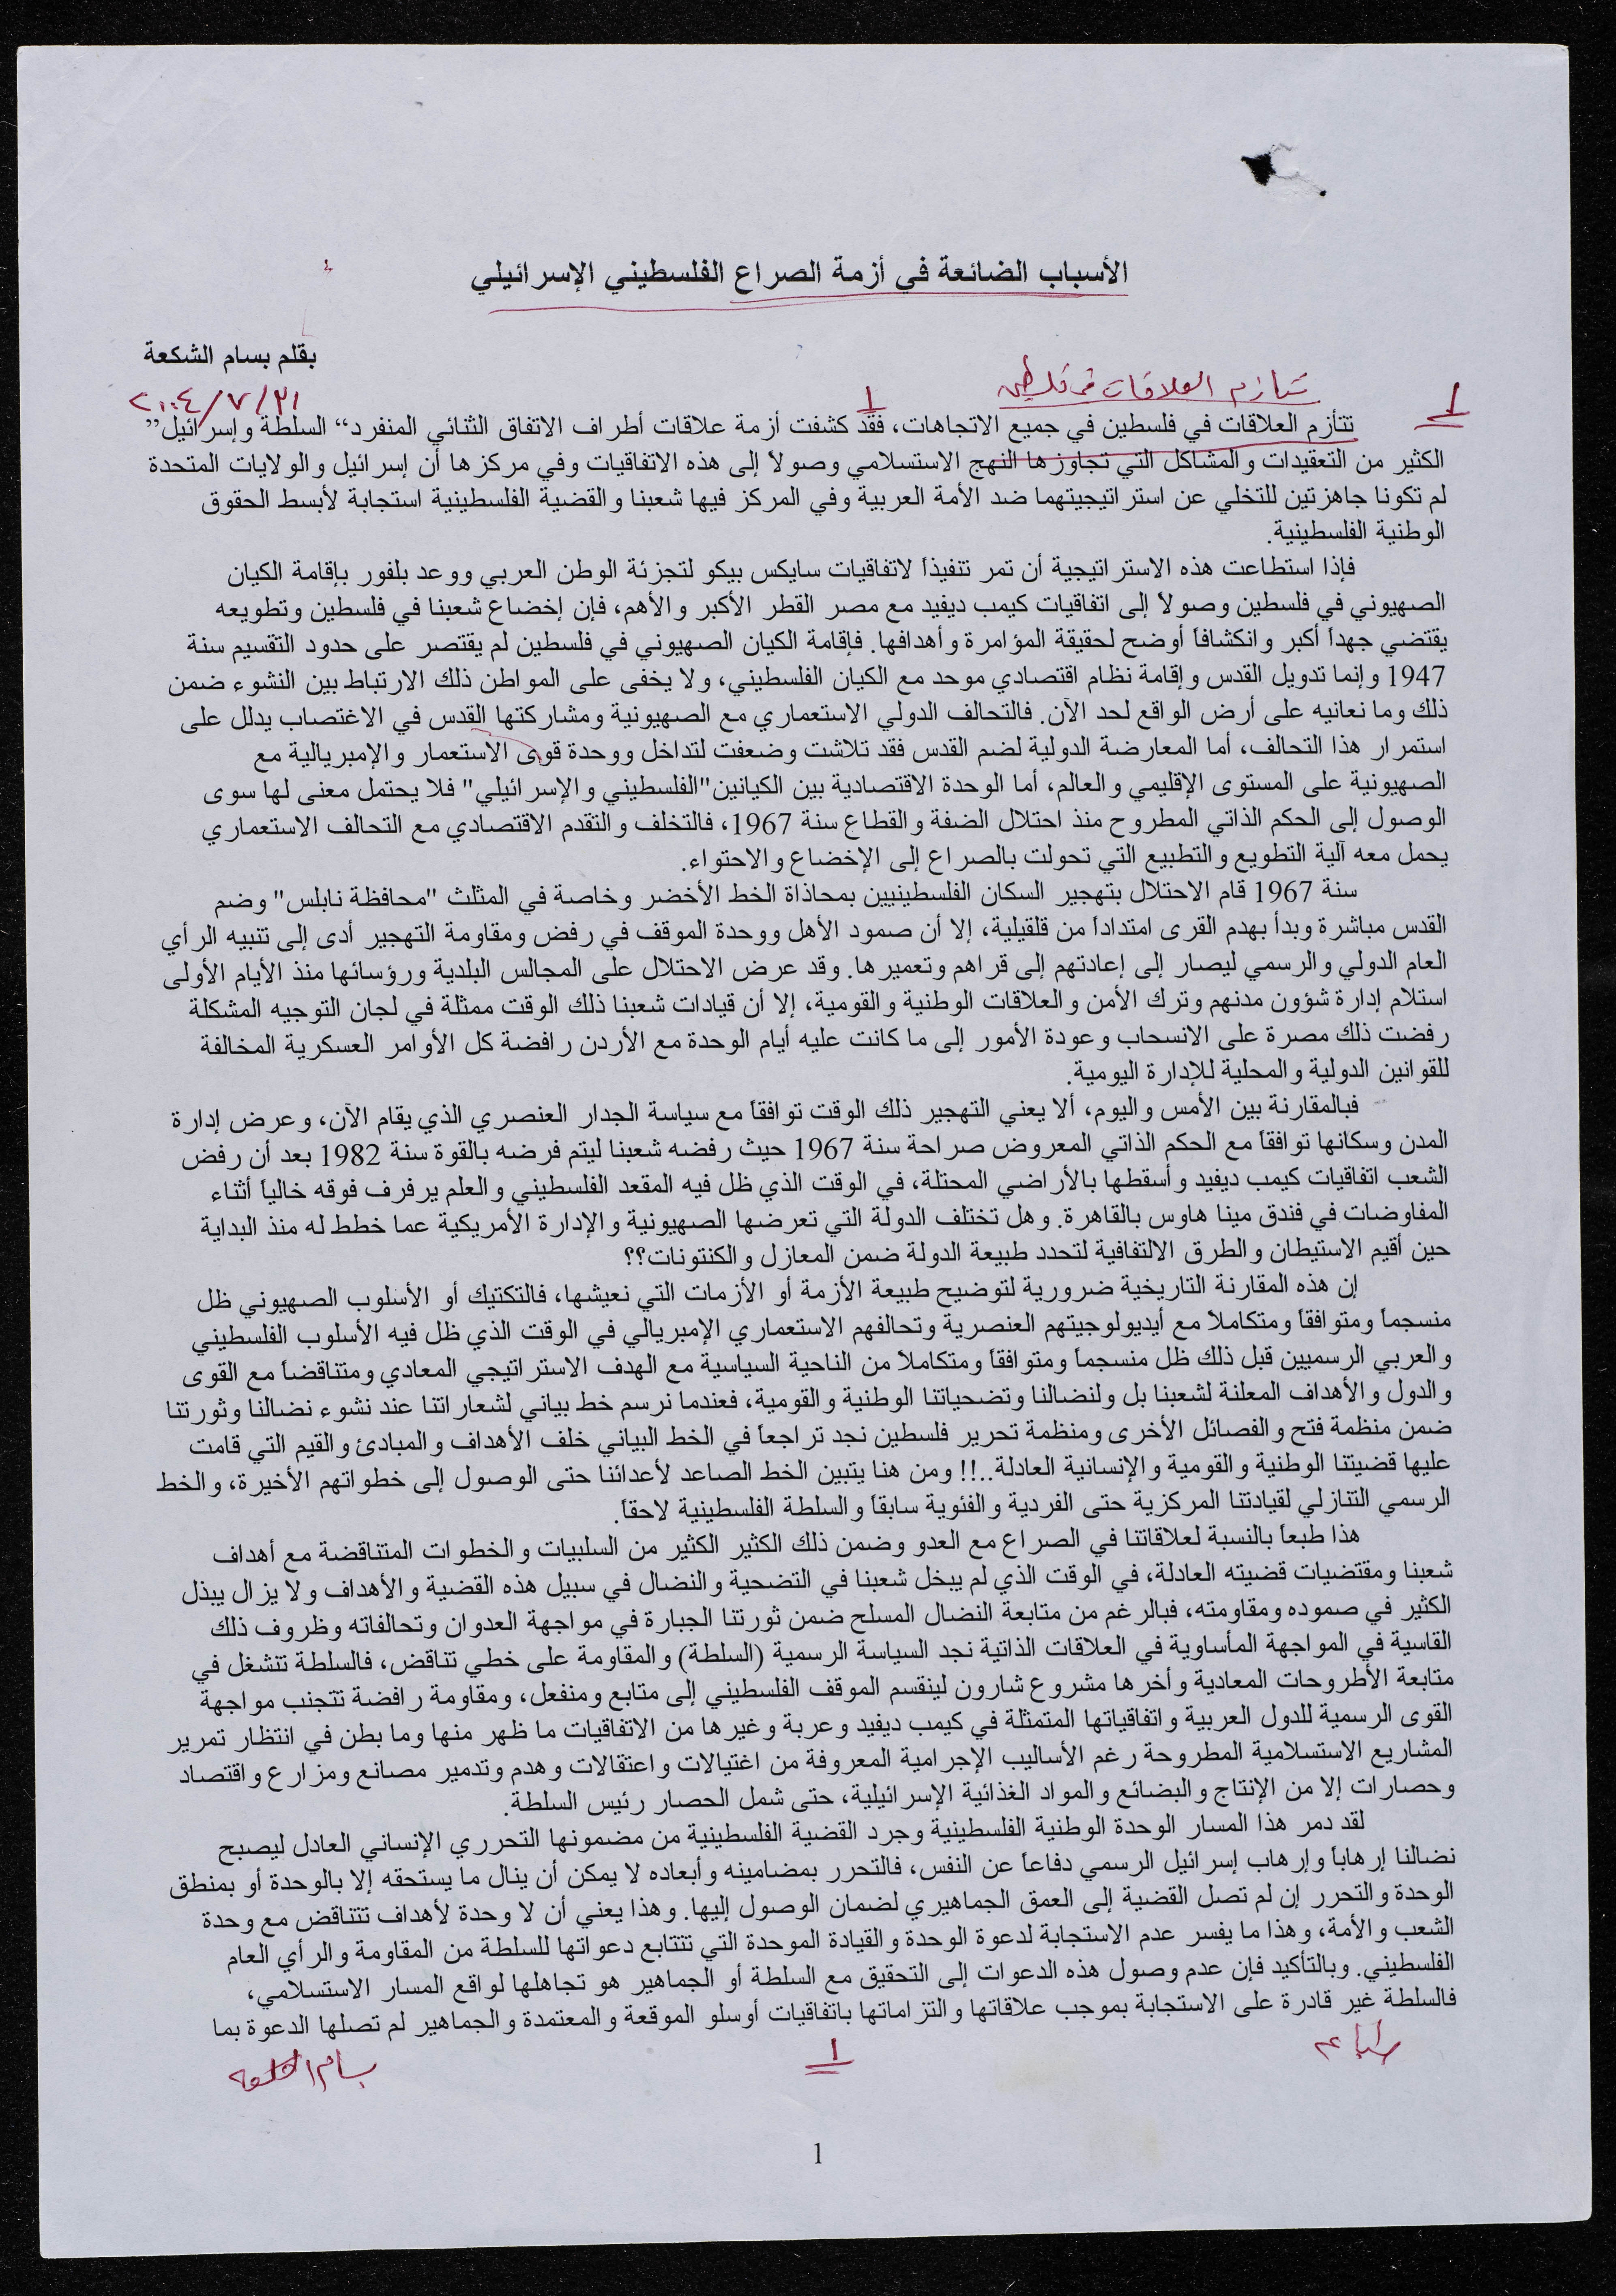 الأسباب الضائعة في أزمة الصراع الفلسطيني الإسرائيلي
بقلم بسام الشكعة
٢٠٠٤/٧/٢١
تتأزم العلاقات في فلسطين
١
١
تتأزم العلاقات في فلسطين في جميع الاتجاهات، فقد كشفت أزمة علاقات أطراف الاتفاق الثنائي المنفرد“ السلطة وإسرائيل”
الكثير من التعقيدات والمشاكل التي تجاوزها النهج الاستسلامي وصولاً إلى هذه الاتفاقيات وفي مركزها أن إسرائيل والولايات المتحدة
لم تكونا جاهزتين للتخلي عن استراتيجيتهما ضد الأمة العربية وفي المركز فيها شعبنا والقضية الفلسطينية استجابة لأبسط الحقوق
الوطنية الفلسطينية.
فإذا استطاعت هذه الاستراتيجية أن تمر تنفيذاً لاتفاقيات سايكس بيكو لتجزئة الوطن العربي ووعد بلفور بإقامة الكيان
الصهيوني في فلسطين وصولاً إلى اتفاقيات كيمب ديفيد مع مصر القطر الأكبر والأهم، فإن إخضاع شعبنا في فلسطين وتطويعه
يقتضي جهداً أكبر وانكشافاً أوضح لحقيقة المؤامرة وأهدافها. فإقامة الكيان الصهيوني في فلسطين لم يقتصر على حدود التقسيم سنة
1947 وإنما تدويل القدس وإقامة نظام اقتصادي موحد مع الكيان الفلسطيني، ولا يخفى على المواطن ذلك الارتباط بين النشوء ضمن
ذلك وما نعانيه على أرض الواقع لحد الآن. فالتحالف الدولي الاستعماري مع الصهيونية ومشاركتها القدس في الاغتصاب يدلل على
استمرار هذا التحالف، أما المعارضة الدولية لضم القدس فقد تلاشت وضعفت لتداخل ووحدة قوى الاستعمار والإمبريالية مع
الصهيونية على المستوى الإقليمي والعالم، أما الوحدة الاقتصادية بين الكيانين"الفلسطيني والإسرائيلي" فلا يحتمل معنى لها سوى
الوصول إلى الحكم الذاتي المطروح منذ احتلال الضفة والقطاع سنة 1967، فالتخلف والتقدم الاقتصادي مع التحالف الاستعماري
يحمل معه آلية التطويع والتطبيع التي تحولت بالصراع إلى الإخضاع والاحتواء.
سنة 1967 قام الاحتلال بتهجير السكان الفلسطينيين بمحاذاة الخط الأخضر وخاصة في المثلث "محافظة نابلس" وضم
القدس مباشرة وبدأ بهدم القرى امتداداً من قلقيلية، إلا أن صمود الأهل ووحدة الموقف في رفض ومقاومة التهجير أدى إلى تنبيه الرأي
العام الدولي والرسمي ليصار إلى إعادتهم إلى قراهم وتعميرها. وقد عرض الاحتلال على المجالس البلدية ورؤسائها منذ الأيام الأولى
استلام إدارة شؤون مدنهم وترك الأمن والعلاقات الوطنية والقومية، إلا أن قيادات شعبنا ذلك الوقت ممثلة في لجان التوجيه المشكلة
رفضت ذلك مصرة على الانسحاب وعودة الأمور إلى ما كانت عليه أيام الوحدة مع الأردن رافضة كل الأوامر العسكرية المخالفة
للقوانين الدولية والمحلية للإدارة اليومية.
فبالمقارنة بين الأمس واليوم، ألا يعني التهجير ذلك الوقت توافقاً مع سياسة الجدار العنصري الذي يقام الآن، وعرض إدارة
المدن وسكانها توافقاً مع الحكم الذاتي المعروض صراحة سنة 1967 حيث رفضه شعبنا ليتم فرضه بالقوة سنة 1982 بعد أن رفض
الشعب اتفاقيات كيمب ديفيد وأسقطها بالأراضي المحتلة، في الوقت الذي ظل فيه المقعد الفلسطيني والعلم يرفرف فوقه خالياً أثناء
المفاوضات في فندق مينا هاوس بالقاهرة. وهل تختلف الدولة التي تعرضها الصهيونية والإدارة الأمريكية عما خطط له منذ البداية
حين أقيم الاستيطان والطرق الالتفافية لتحدد طبيعة الدولة ضمن المعازل والكنتونات؟؟
إن هذه المقارنة التاريخية ضرورية لتوضيح طبيعة الأزمة أو الأزمات التي نعيشها، فالتكتيك أو الأسلوب الصهيوني ظل
منسجماً ومتوافقاً ومتكاملاً مع أيديولوجيتهم العنصرية وتحالفهم الاستعماري الإمبريالي في الوقت الذي ظل فيه الأسلوب الفلسطيني
والعربي الرسميين قبل ذلك ظل منسجماً ومتوافقاً ومتكاملاً من الناحية السياسية مع الهدف الاستراتيجي المعادي ومتناقضاً مع القوى
والدول والأهداف المعلنة لشعبنا بل ولنضالنا وتضحياتنا الوطنية والقومية، فعندما نرسم خط بياني لشعاراتنا عند نشوء نضالنا وثورتنا
ضمن منظمة فتح والفصائل الأخرى ومنظمة تحرير فلسطين نجد تراجعاً في الخط البياني خلف الأهداف والمبادئ والقيم التي قامت
عليها قضيتنا الوطنية والقومية والإنسانية العادلة..!! ومن هنا يتبين الخط الصاعد لأعدائنا حتى الوصول إلى خطواتهم الأخيرة، والخط
الرسمي التنازلي لقيادتنا المركزية حتى الفردية والفئوية سابقاً والسلطة الفلسطينية لاحقاً.
هذا طبعاً بالنسبة لعلاقاتنا في الصراع مع العدو وضمن ذلك الكثير الكثير من السلبيات والخطوات المتناقضة مع أهداف
شعبنا ومقتضيات قضيته العادلة، في الوقت الذي لم يبخل شعبنا في التضحية والنضال في سبيل هذه القضية والأهداف ولا يزال يبذل
الكثير في صموده ومقاومته، فبالرغم من متابعة النضال المسلح ضمن ثورتنا الجبارة في مواجهة العدوان وتحالفاته وظروف ذلك
القاسية في المواجهة المأساوية في العلاقات الذاتية نجد السياسة الرسمية (السلطة) والمقاومة على خطي تناقض، فالسلطة تنشغل في
متابعة الأطروحات المعادية وأخرها مشروع شارون لينقسم الموقف الفلسطيني إلى متابع ومنفعل، ومقاومة رافضة تتجنب مواجهة
القوى الرسمية للدول العربية واتفاقياتها المتمثلة في كيمب ديفيد وعربة وغيرها من الاتفاقيات ما ظهر منها وما بطن في انتظار تمرير
المشاريع الاستسلامية المطروحة رغم الأساليب الإجرامية المعروفة من اغتيالات واعتقالات وهدم وتدمير مصانع ومزارع واقتصاد
وحصارات إلا من الإنتاج والبضائع والمواد الغذائية الإسرائيلية، حتى شمل الحصار رئيس السلطة.
لقد دمر هذا المسار الوحدة الوطنية الفلسطينية وجرد القضية الفلسطينية من مضمونها التحرري الإنساني العادل ليصبح
نضالنا إرهاباً وإرهاب إسرائيل الرسمي دفاعاً عن النفس، فالتحرر بمضامينه وأبعاده لا يمكن أن ينال ما يستحقه إلا بالوحدة أو بمنطق
الوحدة والتحرر إن لم تصل القضية إلى العمق الجماهيري لضمان الوصول إليها. وهذا يعني أن لا وحدة لأهداف تتناقض مع وحدة
الشعب والأمة، وهذا ما يفسر عدم الاستجابة لدعوة الوحدة والقيادة الموحدة التي تتتابع دعواتها للسلطة من المقاومة والرأي العام
الفلسطيني. وبالتأكيد فإن عدم وصول هذه الدعوات إلى التحقيق مع السلطة أو الجماهير هو تجاهلها لواقع المسار الاستسلامي،
فالسلطة غير قادرة على الاستجابة بموجب علاقاتها والتزاماتها باتفاقيات أوسلو الموقعة والمعتمدة والجماهير لم تصلها الدعوة بما
طباعة
١
بسام الشكعة
1